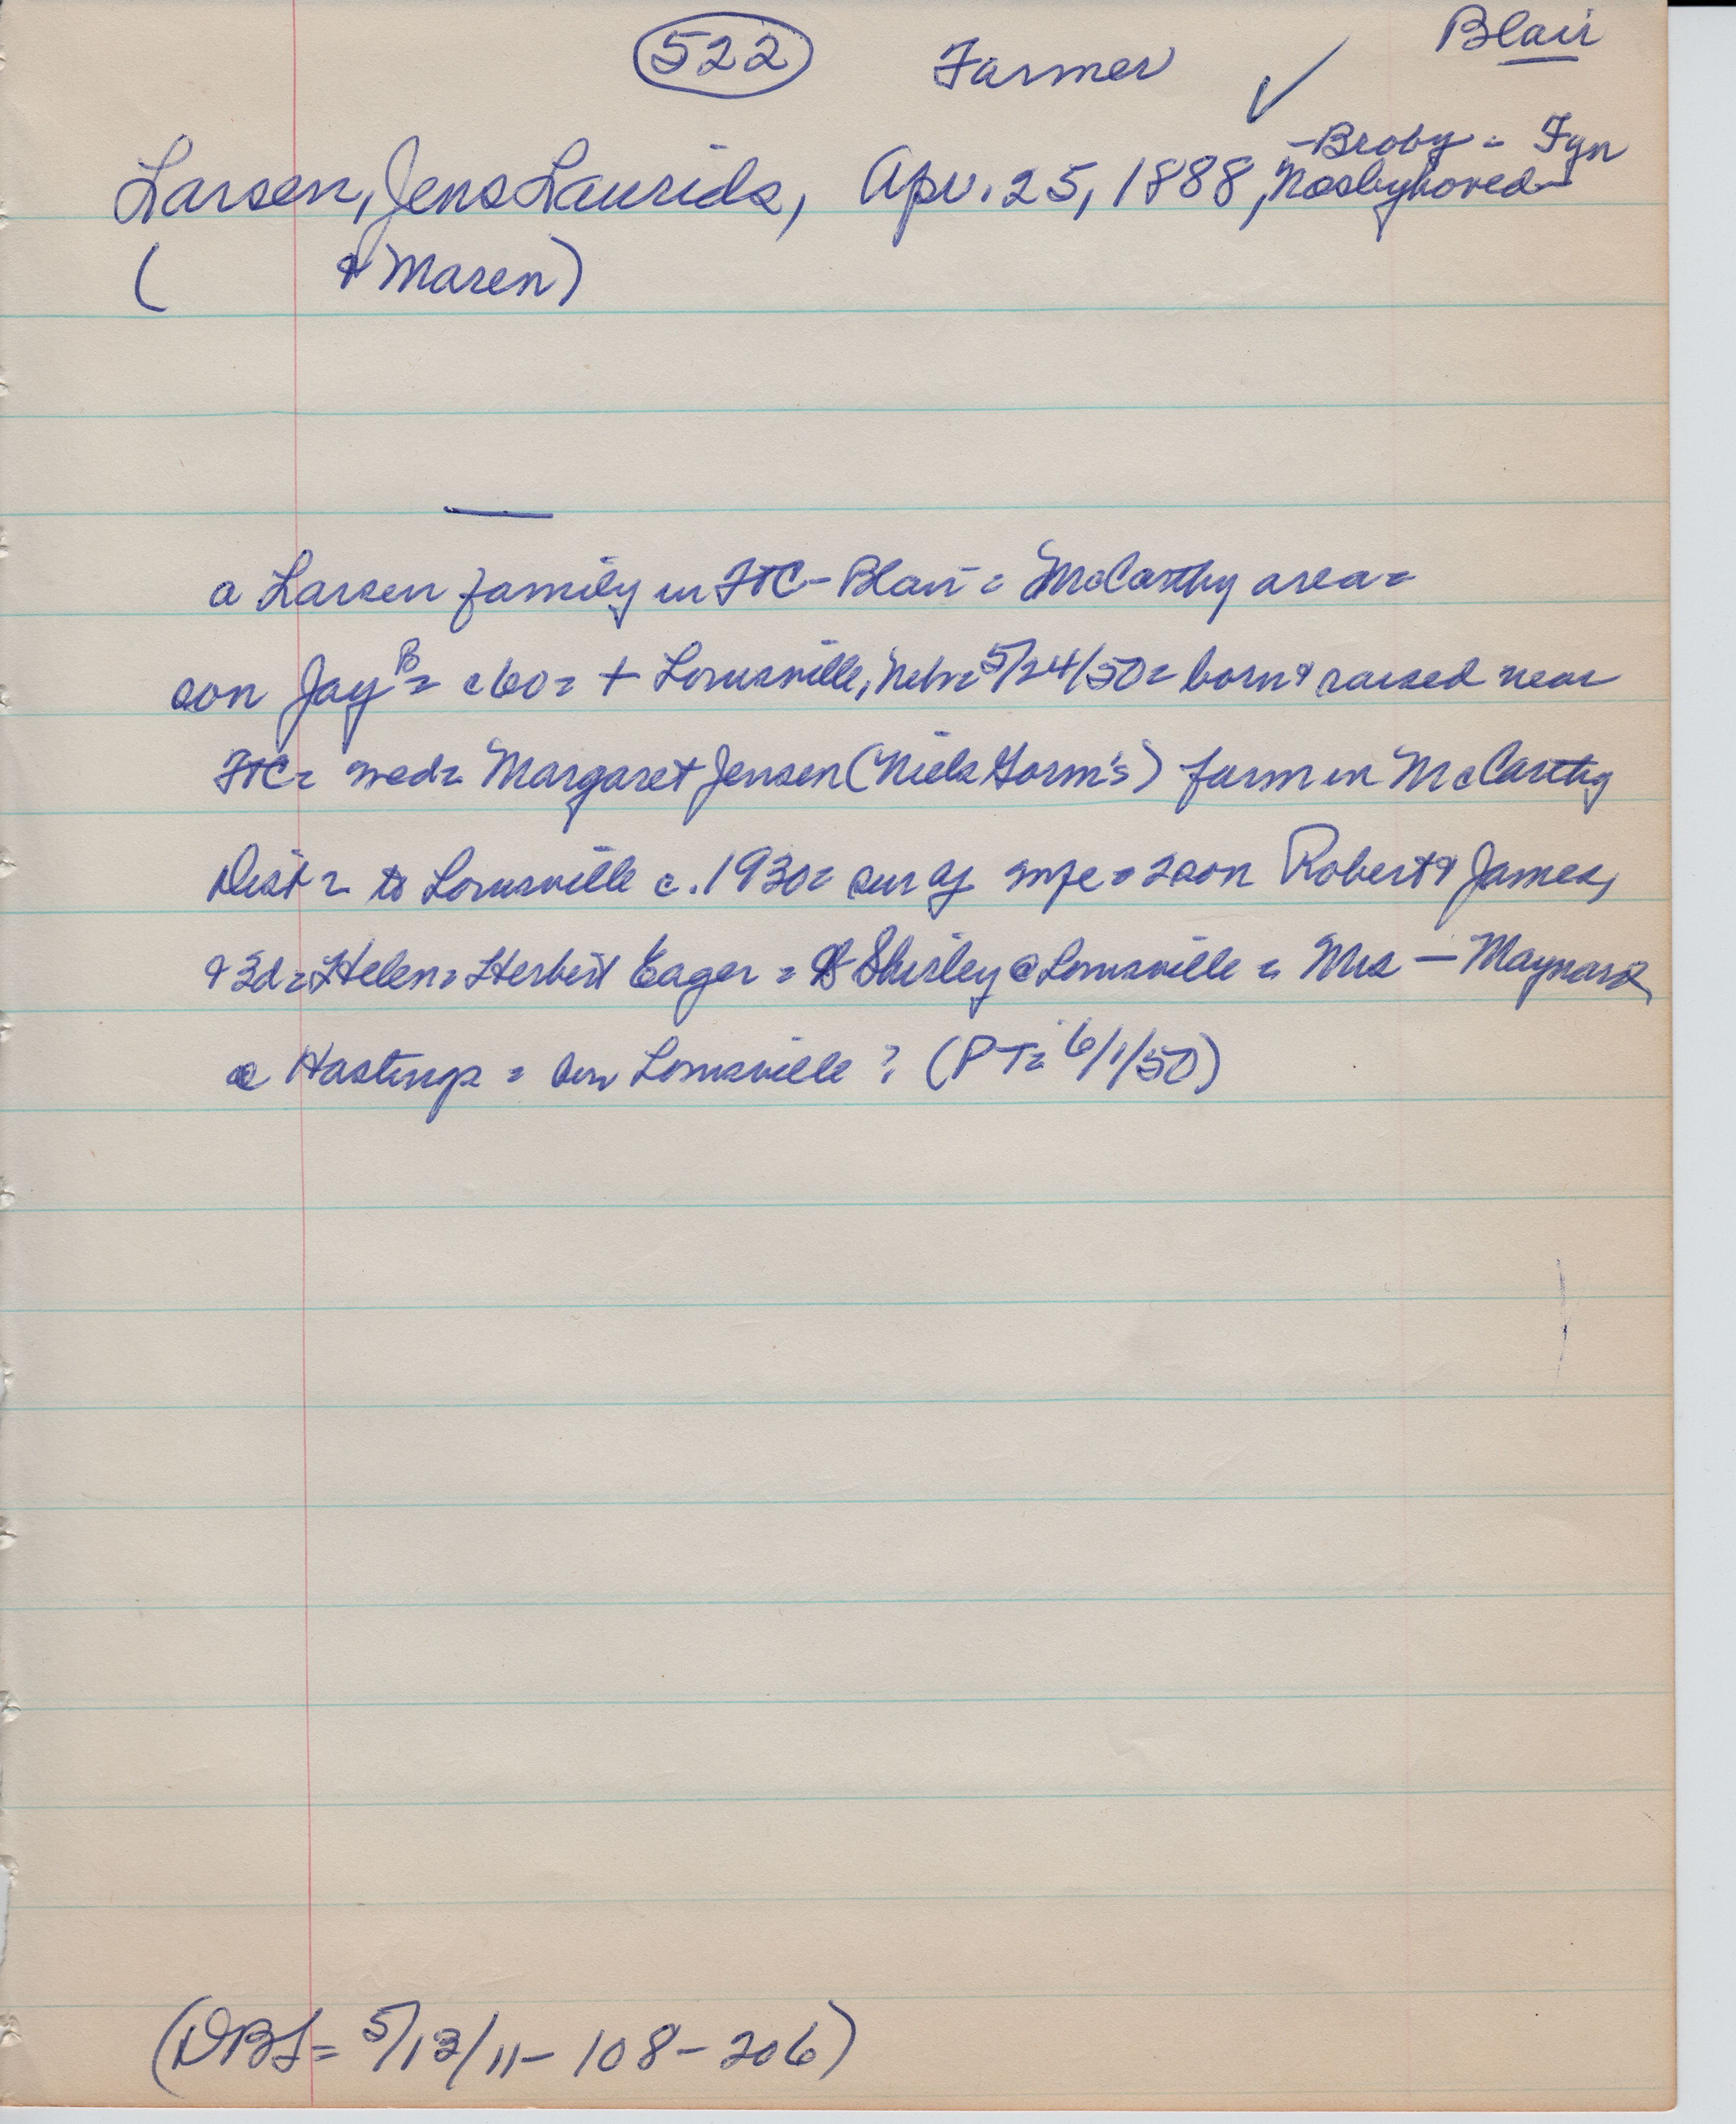 522 Farmer ✓ Blair
-Broby - Fyn
Larsen, Jens Laurids, Apr. 25, 1888, Næsbyhoved-
( & Maren)
a Larsen family in FtC - Blair = McCarthy area =
son Jay B = c60 = + Louisville, Neb = 5/24/50 = born & raised near
FtC = wed = Margaret Jensen (Niels Gorm's) farm in McCarthy
Dist = to Louisville c. 1930 = sur by wife = 2 son Robert & James,
& 3d = Helen = Herbert Eager = Shirley @ Louisville = Mrs — Maynard
@ Hastings = bur Louisville ? (PT = 6/1/50)
(DBS = 5/13/11 - 108 - 206)